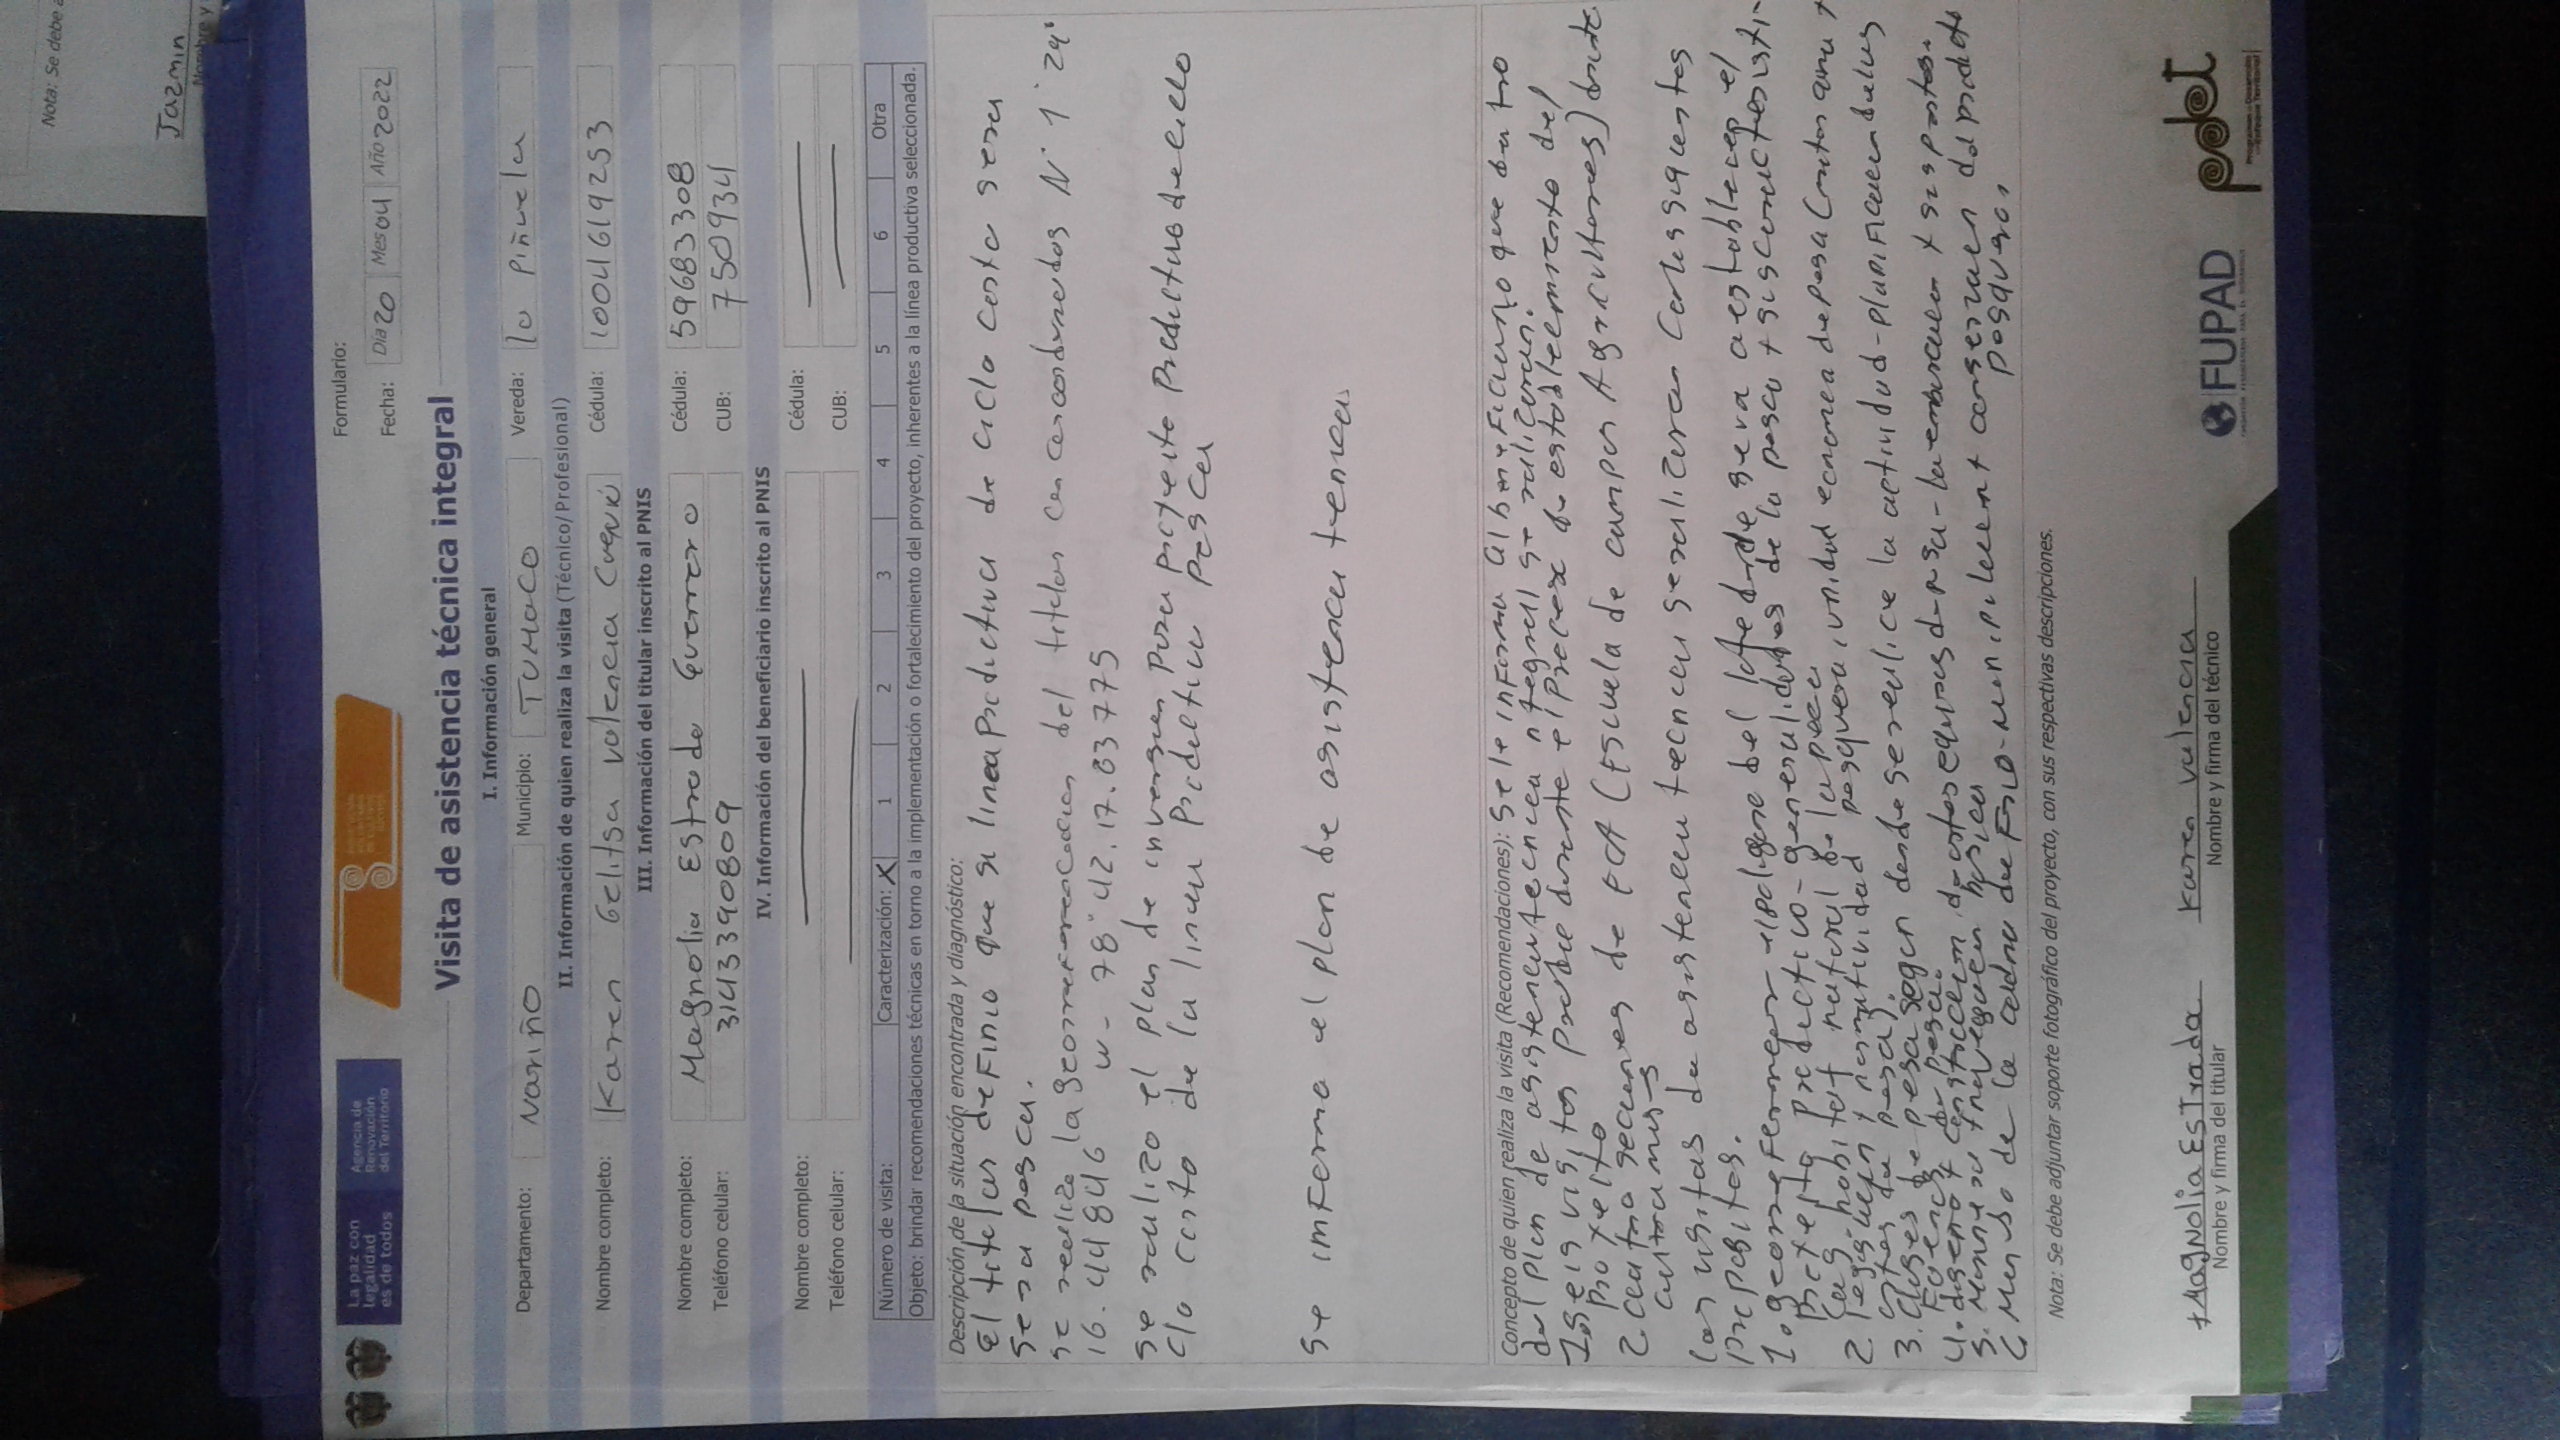 Nota: Se debe a
Jazmin
Nombre y
La paz con
legalidad
es de todos
Agencia de
Renovación
del Territorio
Formulario:
Fecha: Dia 20 Mes 04 Año 2022
Visita de asistencia técnica integral
I. Información general
Departamento: Nariño Municipio: TUMACO Vereda: la Piñuela
II. Información de quien realiza la visita (Técnico/Profesional)
Nombre completo: Karen Gelitsa Valencia Cuenú Cédula: 1004619253
III. Información del titular inscrito al PNIS
Nombre completo: Magnolia Estrada Guerrero Cédula: 59683308
Teléfono celular: 3143390809 CUB: 7509341
IV. Información del beneficiario inscrito al PNIS
Nombre completo: Cédula:
Teléfono celular: CUB:
Número de visita: Caracterización: X 1 2 3 4 5 6 Otra
Objeto: brindar recomendaciones técnicas en torno a la implementación o fortalecimiento del proyecto, inherentes a la línea productiva seleccionada.
Descripción de la situación encontrada y diagnóstico:
El titular definio que su linea Productiva de ciclo corto sera
sera pesca.
se realizo la georreferenciacion del titular con coordenadas N 1° 29"
16.448446 W - 78° 42. 17.83775
se realizo el plan de inversion Para proyecto Productivo de ciclo
clo corto de la linea Productiva Pesca
se informo el plan de asistencia tecnica
Concepto de quien realiza la visita (Recomendaciones): se le informa al beneficiario que dentro
del plan de asistencia tecnica integral se realizaran.
1. seis visitas Practica durante el Proceso de establecimiento del
Proyecto
2. cuatro secciones de ECA (Escuela de campos Agricultores) durante
las visitas de asistencia tecnica se realizaran con los siguientes
propositos.
1. georreferenciar el poligono del lote donde se va a establecer el
Proyecto Productivo - generalidades de la pesca y sus caracteristi-
cas habitat natural de la pesca
2. legislacion y normatividad pesquera, unidad economica de pesca (
artes de pesca).
3. clases de pesca segun donde se realice la actividad - planificacion
faenas de pesca.
4. diseño y construccion de artes equipos de pesca - la embarcacion y sus partes.
5. navegacion basica
6 de la cadena de frio - manipulacion y conservacion del producto
pesquero.
Nota: Se debe adjuntar soporte fotográfico del proyecto, con sus respectivas descripciones.
+Magnolia Estrada Karen Valencia
Nombre y firma del titular Nombre y firma del técnico
FUPAD
pdet
Programas de Desarrollo
con Enfoque Territorial